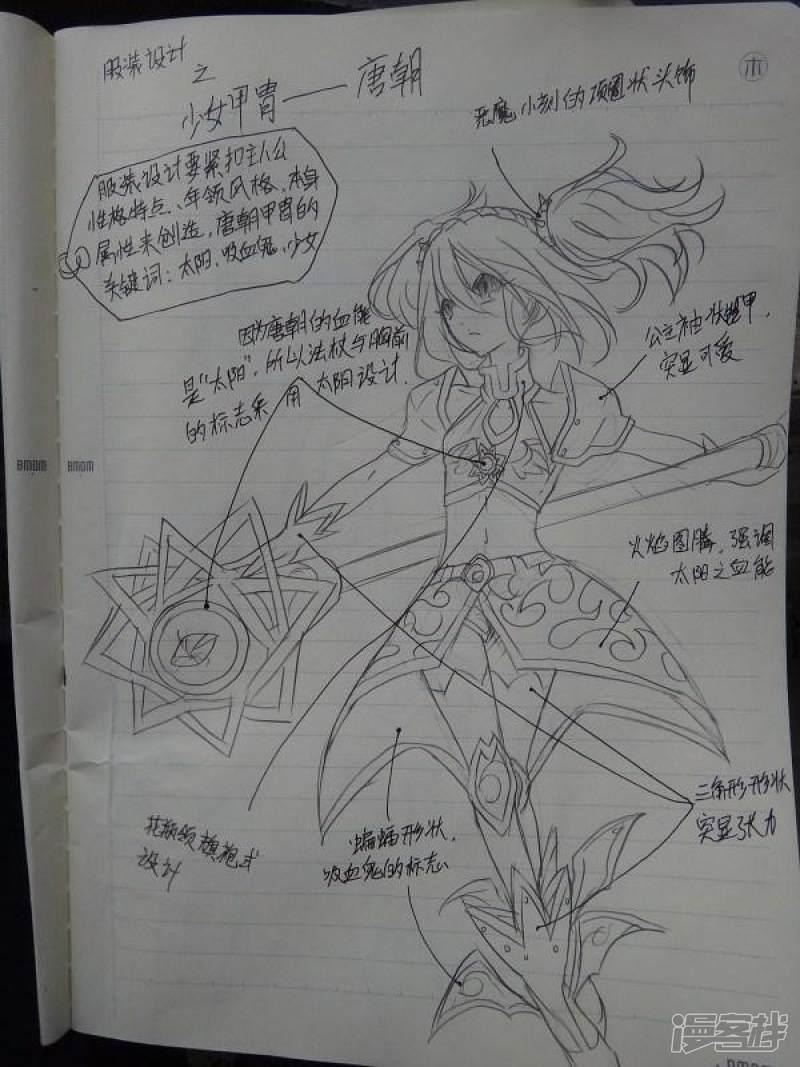 服装设计
之
少女甲胄——唐朝
木
恶魔小刻的项圈状头饰
服装设计要紧扣主人公
性格特点、年领风格、本身
属性来创造，唐朝甲胄的
关键词：太阳、吸血鬼、少女
因为唐朝的血能
是“太阳”，所以法杖与胸前
的标志采用太阳设计.
公主袖状铠甲，
突显可爱
BMDM
BMDM
火焰图腾，强调
太阳之血能
三角形形状
突显张力
花瓶领旗袍式
设计
蝙蝠形状，
吸血鬼的标志
漫客栈